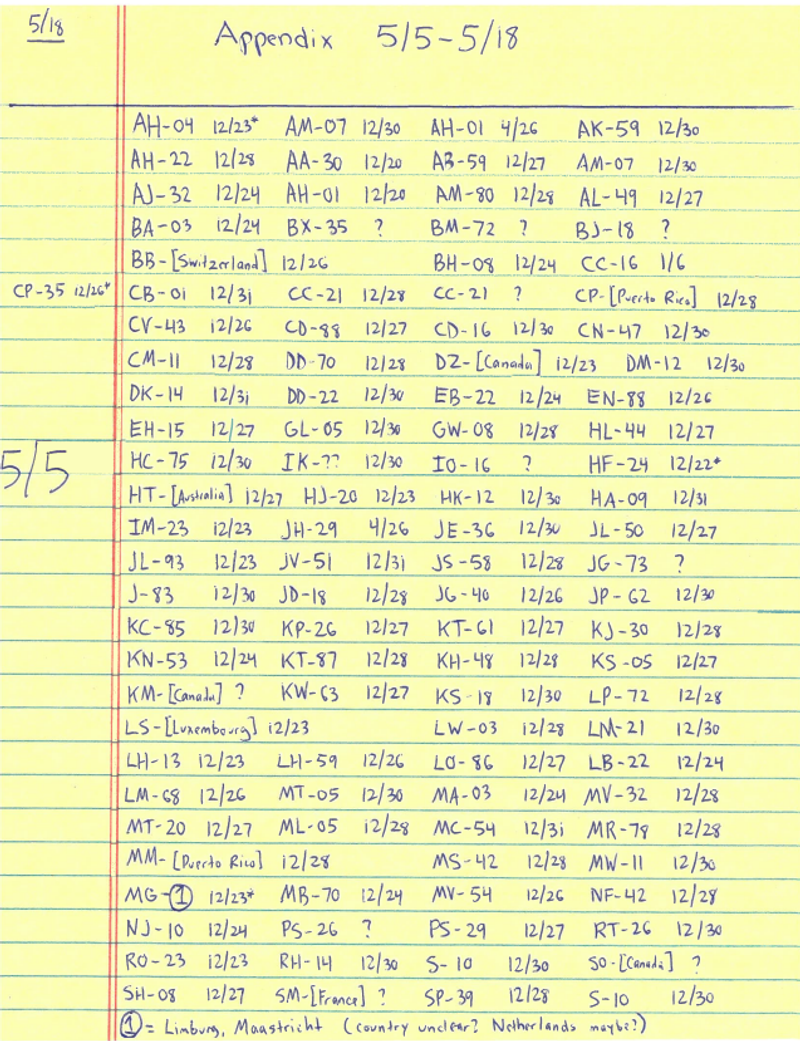 5/18
Appendix 5/5-5/18
AH-04 12/23* AM-07 12/30 AH-01 4/26 AK-59 12/30
AH-22 12/28 AA-30 12/20 AB-59 12/27 AM-07 12/30
AJ-32 12/24 AH-01 12/20 AM-80 12/28 AL-49 12/27
BA-03 12/24 BX-35 ? BM-72 ? BJ-18 ?
BB-[Switzerland] 12/26 BH-08 12/24 CC-16 1/6
CP-35 12/26* CB-01 12/31 CC-21 12/28 CC-21 ? CP-[Puerto Rico] 12/28
CV-43 12/26 CD-88 12/27 CD-16 12/30 CN-47 12/30
CM-11 12/28 DD-70 12/28 DZ-[Canada] 12/23 DM-12 12/30
DK-14 12/31 DD-22 12/30 EB-22 12/24 EN-88 12/26
EH-15 12/27 GL-05 12/30 GW-08 12/28 HL-44 12/27
5/5
HC-75 12/30 IK-?? 12/30 IO-16 ? HF-24 12/22*
HT-[Australia] 12/27 HJ-20 12/23 HK-12 12/30 HA-09 12/31
IM-23 12/23 JH-29 4/26 JE-36 12/30 JL-50 12/27
JL-93 12/23 JV-51 12/31 JS-58 12/28 JG-73 ?
J-83 12/30 JD-18 12/28 JG-40 12/26 JP-62 12/30
KC-85 12/30 KP-26 12/27 KT-61 12/27 KJ-30 12/28
KN-53 12/24 KT-87 12/28 KH-48 12/28 KS-05 12/27
KM-[Canada] ? KW-63 12/27 KS-18 12/30 LP-72 12/28
LS-[Luxembourg] 12/23 LW-03 12/28 LM-21 12/30
LH-13 12/23 LH-59 12/26 LO-86 12/27 LB-22 12/24
LM-68 12/26 MT-05 12/30 MA-03 12/24 MV-32 12/28
MT-20 12/27 ML-05 12/28 MC-54 12/31 MR-78 12/28
MM-[Puerto Rico] 12/28 MS-42 12/28 MW-11 12/30
MG-① 12/23* MB-70 12/24 MV-54 12/26 NF-42 12/28
NJ-10 12/24 PS-26 ? PS-29 12/27 RT-26 12/30
RO-23 12/23 RH-14 12/30 S-10 12/30 SO-[Canada] ?
SH-08 12/27 SM-[France] ? SP-39 12/28 S-10 12/30
① = Limburg, Maastricht (country unclear? Netherlands maybe?)